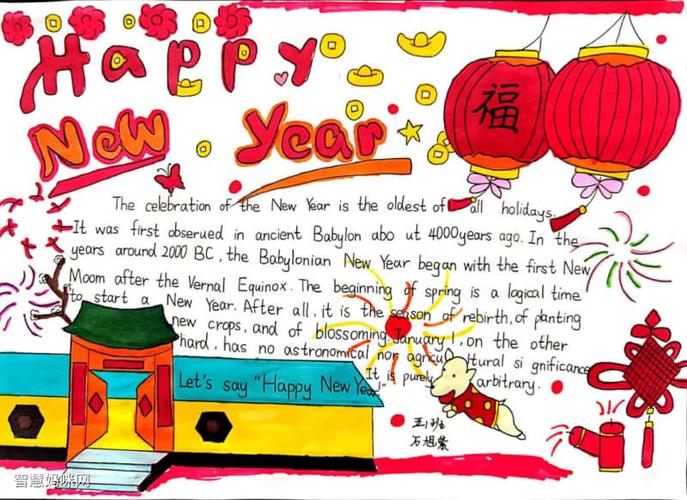 Happy
New Year
福
The celebration of the New Year is the oldest of all holidays.
It was first observed in ancient Babylon abo ut 4000years ago. In the
years around 2000 BC, the Babylonian New Year began with the first New
Moom after the Vernal Equinox. The beginning of spring is a logical time
to start a New Year. After all, it is the season of rebirth, of planting
new crops, and of blossoming. January 1, on the other
hard, has no astronomical nor agricul ltural si gnificance
It is purely arbitrary.
Let's say "Happy New Year!"
五1班
石旭紫
智慧妈咪网